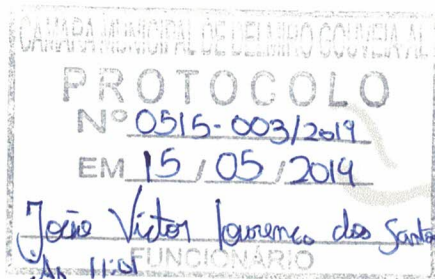 CAMARA MUNICIPAL DE DELMIRO GOUVEIA AL
PROTOCOLO
Nº 0515-003/2019
EM 15 / 05 / 2019
João Victor Lourenço dos Santos
FUNCIONÁRIO
Às 11:01